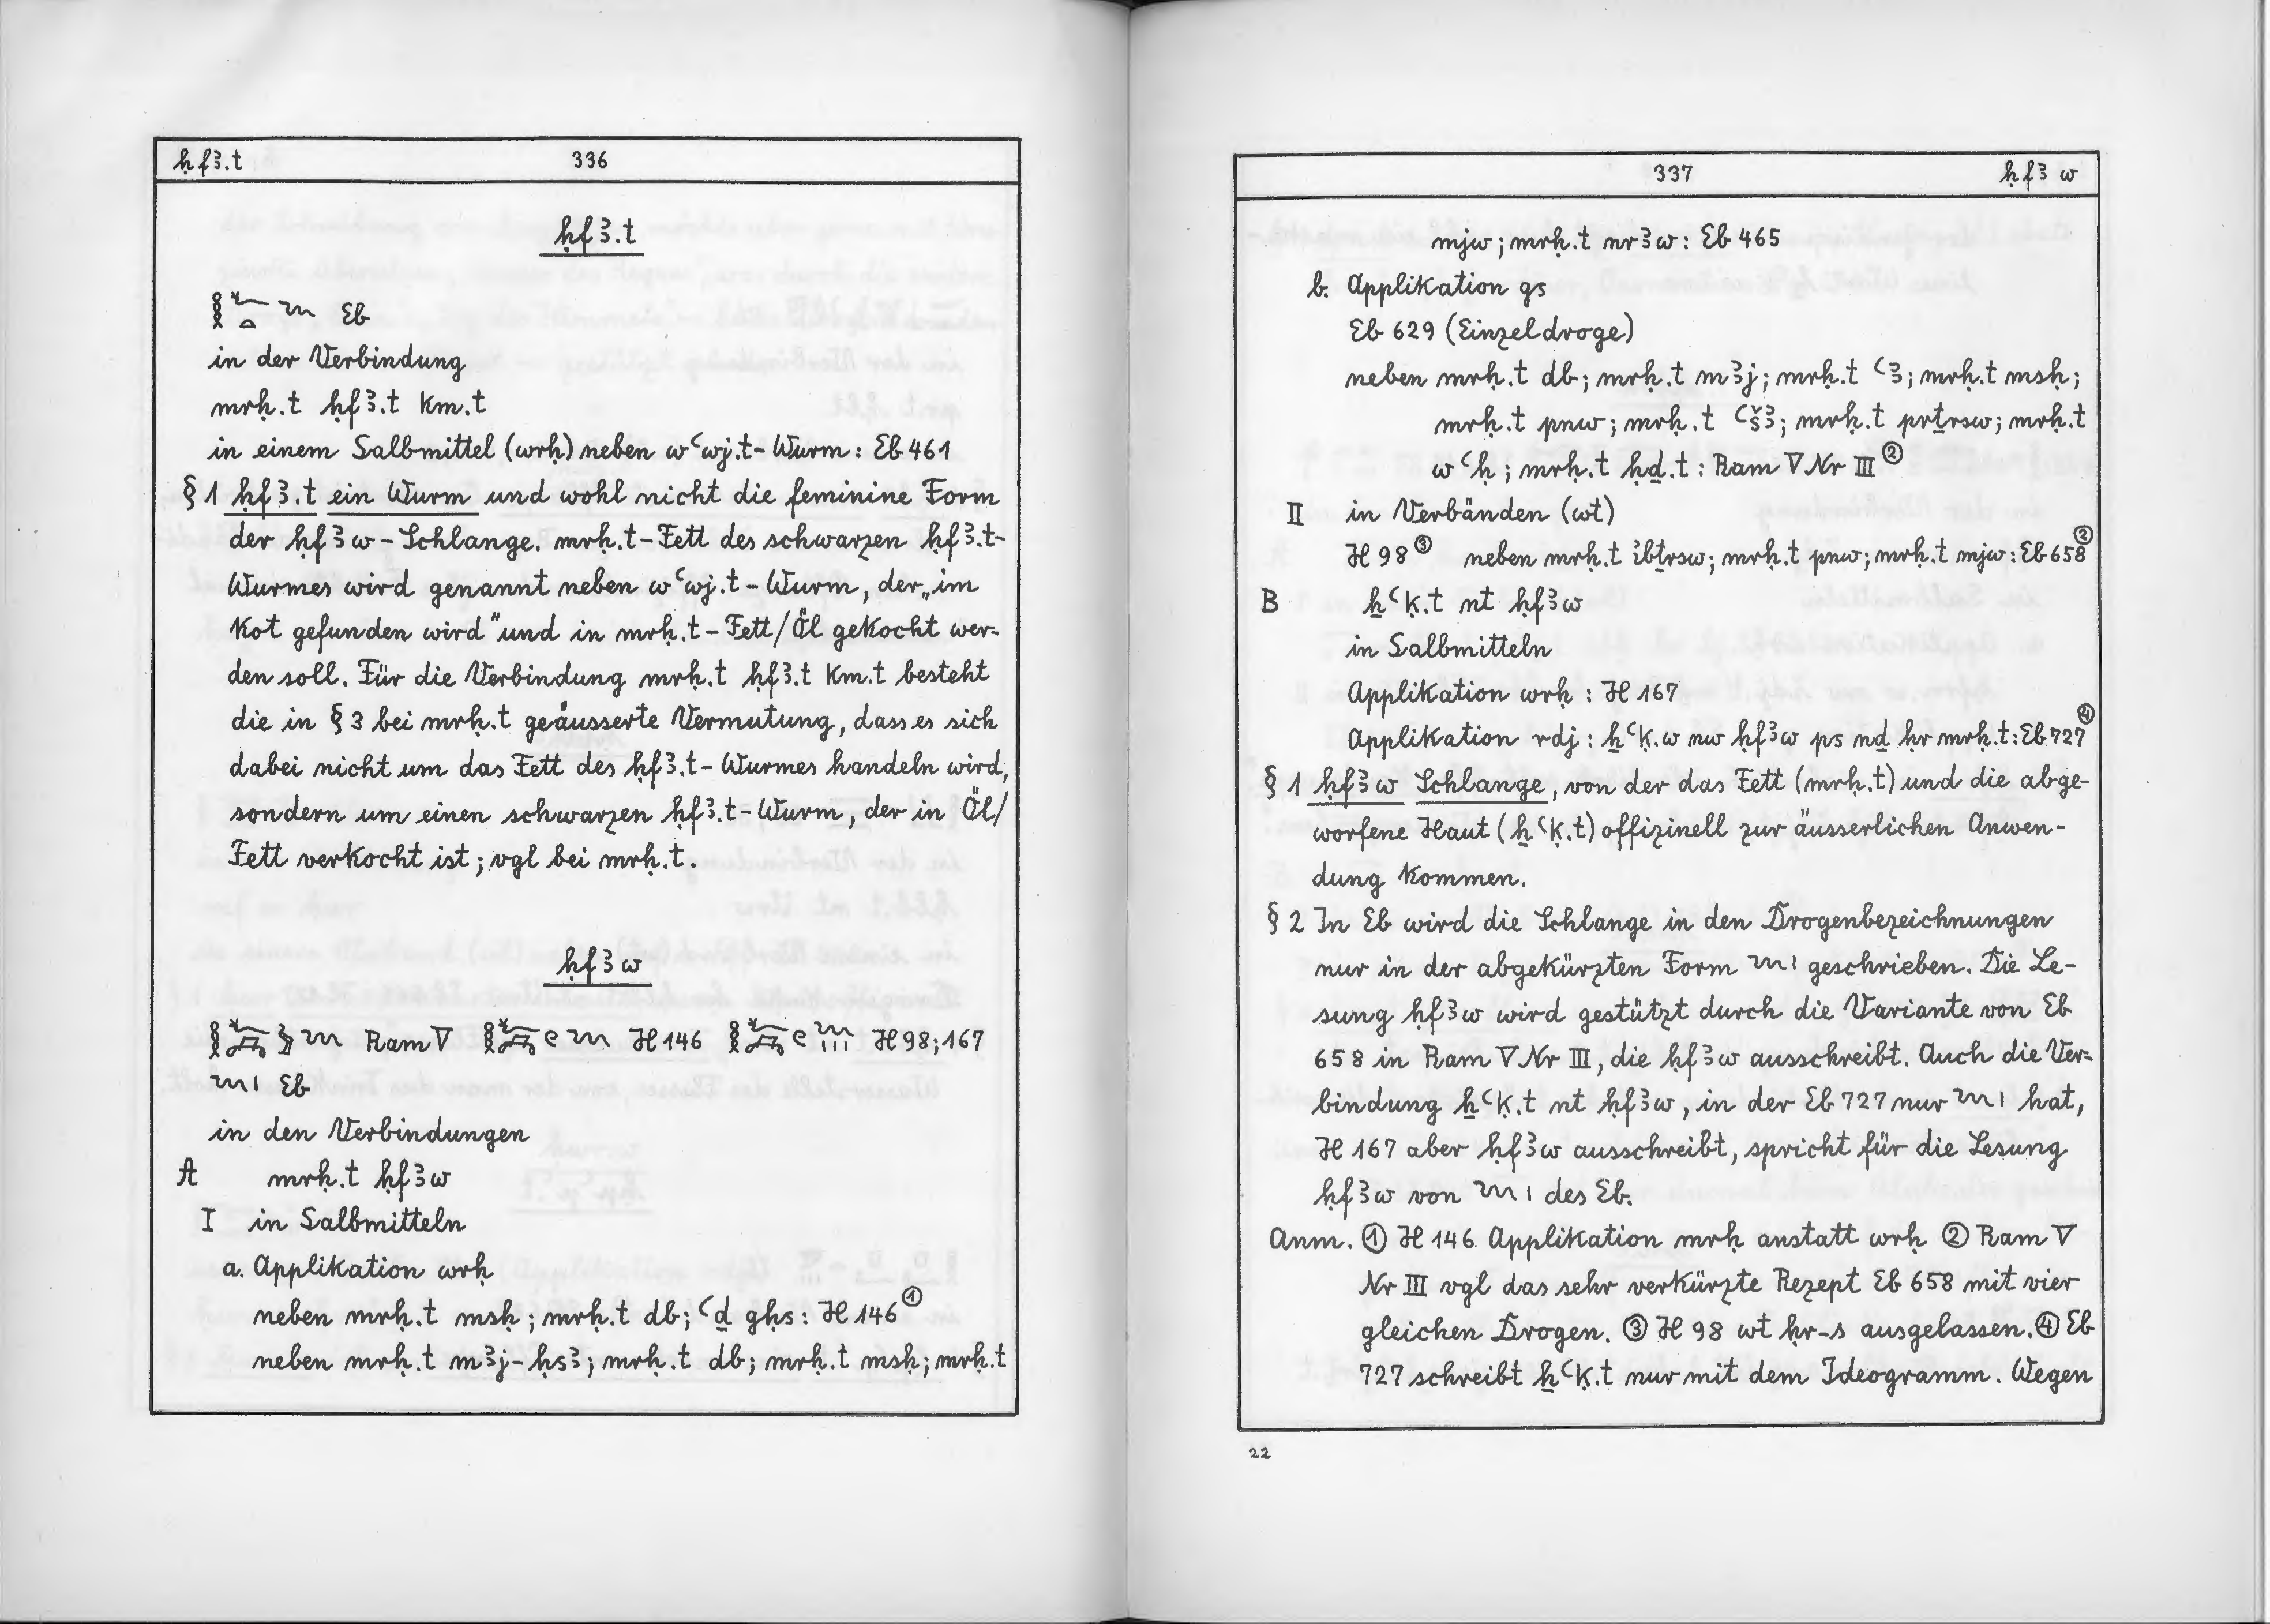 ḥfꜣ.t 336
ḥfꜣ.t
Eb
in der Verbindung
mrḥ.t ḥfꜣ.t km.t
in einem Salbmittel (wrḥ) neben wꜥwj.t-Wurm: Eb 461
§ 1 ḥfꜣ.t ein Wurm und wohl nicht die feminine Form
der ḥfꜣw-Schlange. mrḥ.t-Fett des schwarzen ḥfꜣ.t-
Wurmes wird genannt neben wꜥwj.t-Wurm, der „im
Kot gefunden wird" und in mrḥ.t-Fett/Öl gekocht wer=
den soll. Für die Verbindung mrḥ.t ḥfꜣ.t km.t besteht
die in § 3 bei mrḥ.t geäusserte Vermutung, dass es sich
dabei nicht um das Fett des ḥfꜣ.t-Wurmes handeln wird,
sondern um einen schwarzen ḥfꜣ.t-Wurm, der in Öl/
Fett verkocht ist; vgl bei mrḥ.t.
ḥfꜣw
Ram V H 146 H 98; 167
Eb
in den Verbindungen
A mrḥ.t ḥfꜣw
I in Salbmitteln
a. Applikation wrḥ
neben mrḥ.t msḥ; mrḥ.t db; ꜥḏ gḥs: H 146 ①
neben mrḥ.t mꜣj-ḥsꜣ; mrḥ.t db; mrḥ.t msḥ; mrḥ.t
337 ḥfꜣw
mjw; mrḥ.t nrꜣw: Eb 465
b. Applikation gs
Eb 629 (Einzeldroge)
neben mrḥ.t db; mrḥ.t mꜣj; mrḥ.t ꜥꜣ; mrḥ.t msḥ;
mrḥ.t pnw; mrḥ.t ꜥšꜣ; mrḥ.t prṯrsw; mrḥ.t
wꜥḥ; mrḥ.t ḥḏ.t: Ram V Nr III ②
II in Verbänden (wt)
H 98 ③ neben mrḥ.t ibṯrsw; mrḥ.t pnw; mrḥ.t mjw: Eb 658 ②
B ẖꜥḳ.t nt ḥfꜣw
in Salbmitteln
Applikation wrḥ: H 167
Applikation rdj: ẖꜥḳ.w nw ḥfꜣw ps nḏ ḥr mrḥ.t: Eb 727 ④
§ 1 ḥfꜣw Schlange, von der das Fett (mrḥ.t) und die abge-
worfene Haut (ẖꜥḳ.t) offizinell zur äusserlichen Anwen-
dung kommen.
§ 2 In Eb wird die Schlange in den Drogenbezeichnungen
nur in der abgekürzten Form geschrieben. Die Le-
sung ḥfꜣw wird gestützt durch die Variante von Eb
658 in Ram V Nr III, die ḥfꜣw ausschreibt. Auch die Ver=
bindung ẖꜥḳ.t nt ḥfꜣw, in der Eb 727 nur hat,
H 167 aber ḥfꜣw ausschreibt, spricht für die Lesung
ḥfꜣw von des Eb.
Anm. ① H 146 Applikation mrḥ anstatt wrḥ ② Ram V
Nr III vgl das sehr verkürzte Rezept Eb 658 mit vier
gleichen Drogen. ③ H 98 wt ḥr-s ausgelassen. ④ Eb
727 schreibt ẖꜥḳ.t nur mit dem Ideogramm. Wegen
22